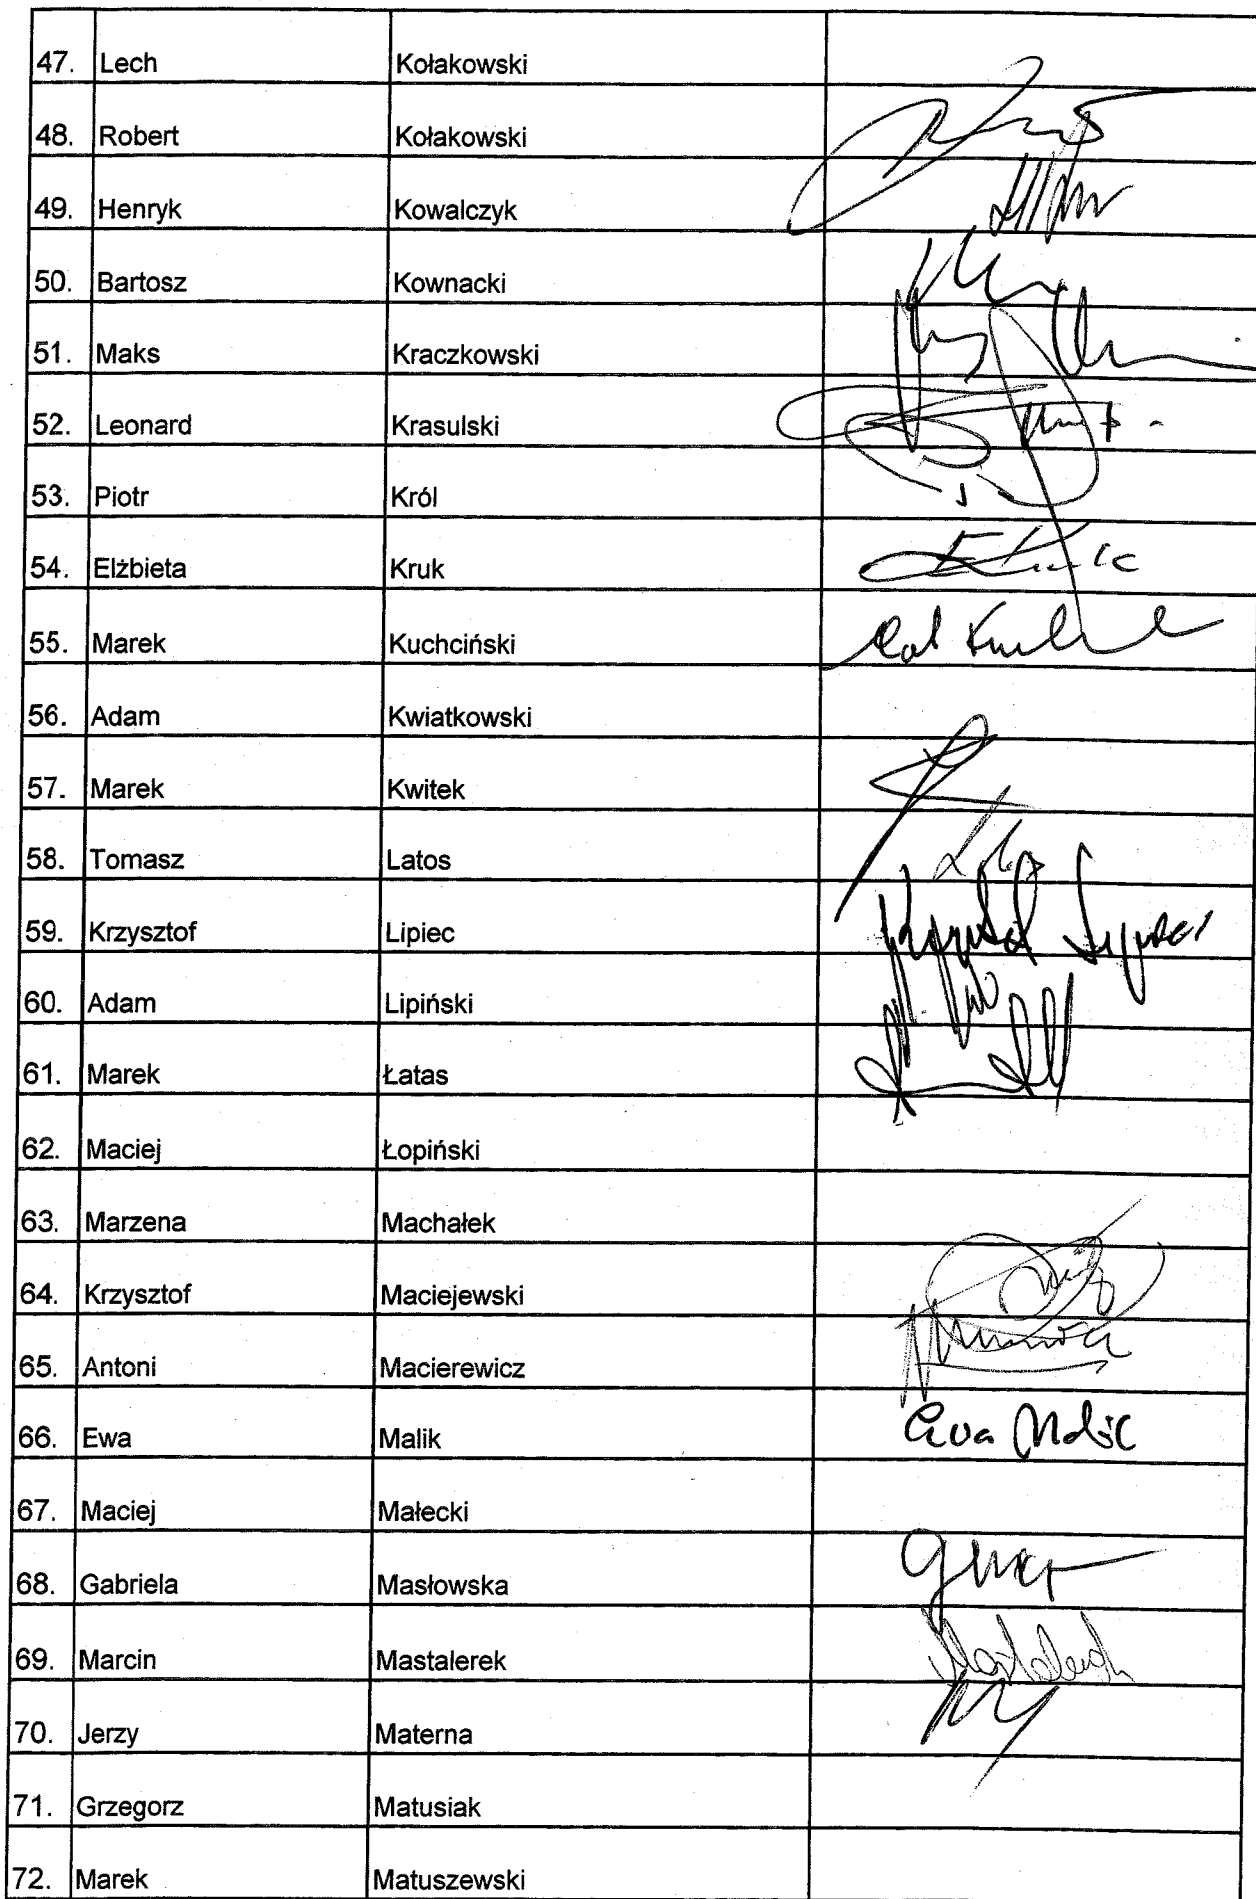 47. Lech Kołakowski
48. Robert Kołakowski
49. Henryk Kowalczyk
50. Bartosz Kownacki
51. Maks Kraczkowski
52. Leonard Krasulski
53. Piotr Król
54. Elżbieta Kruk
55. Marek Kuchciński
56. Adam Kwiatkowski
57. Marek Kwitek
58. Tomasz Latos
59. Krzysztof Lipiec
60. Adam Lipiński
61. Marek Łatas
62. Maciej Łopiński
63. Marzena Machałek
64. Krzysztof Maciejewski
65. Antoni Macierewicz
66. Ewa Malik Ewa Malik
67. Maciej Małecki
68. Gabriela Masłowska
69. Marcin Mastalerek
70. Jerzy Materna
71. Grzegorz Matusiak
72. Marek Matuszewski